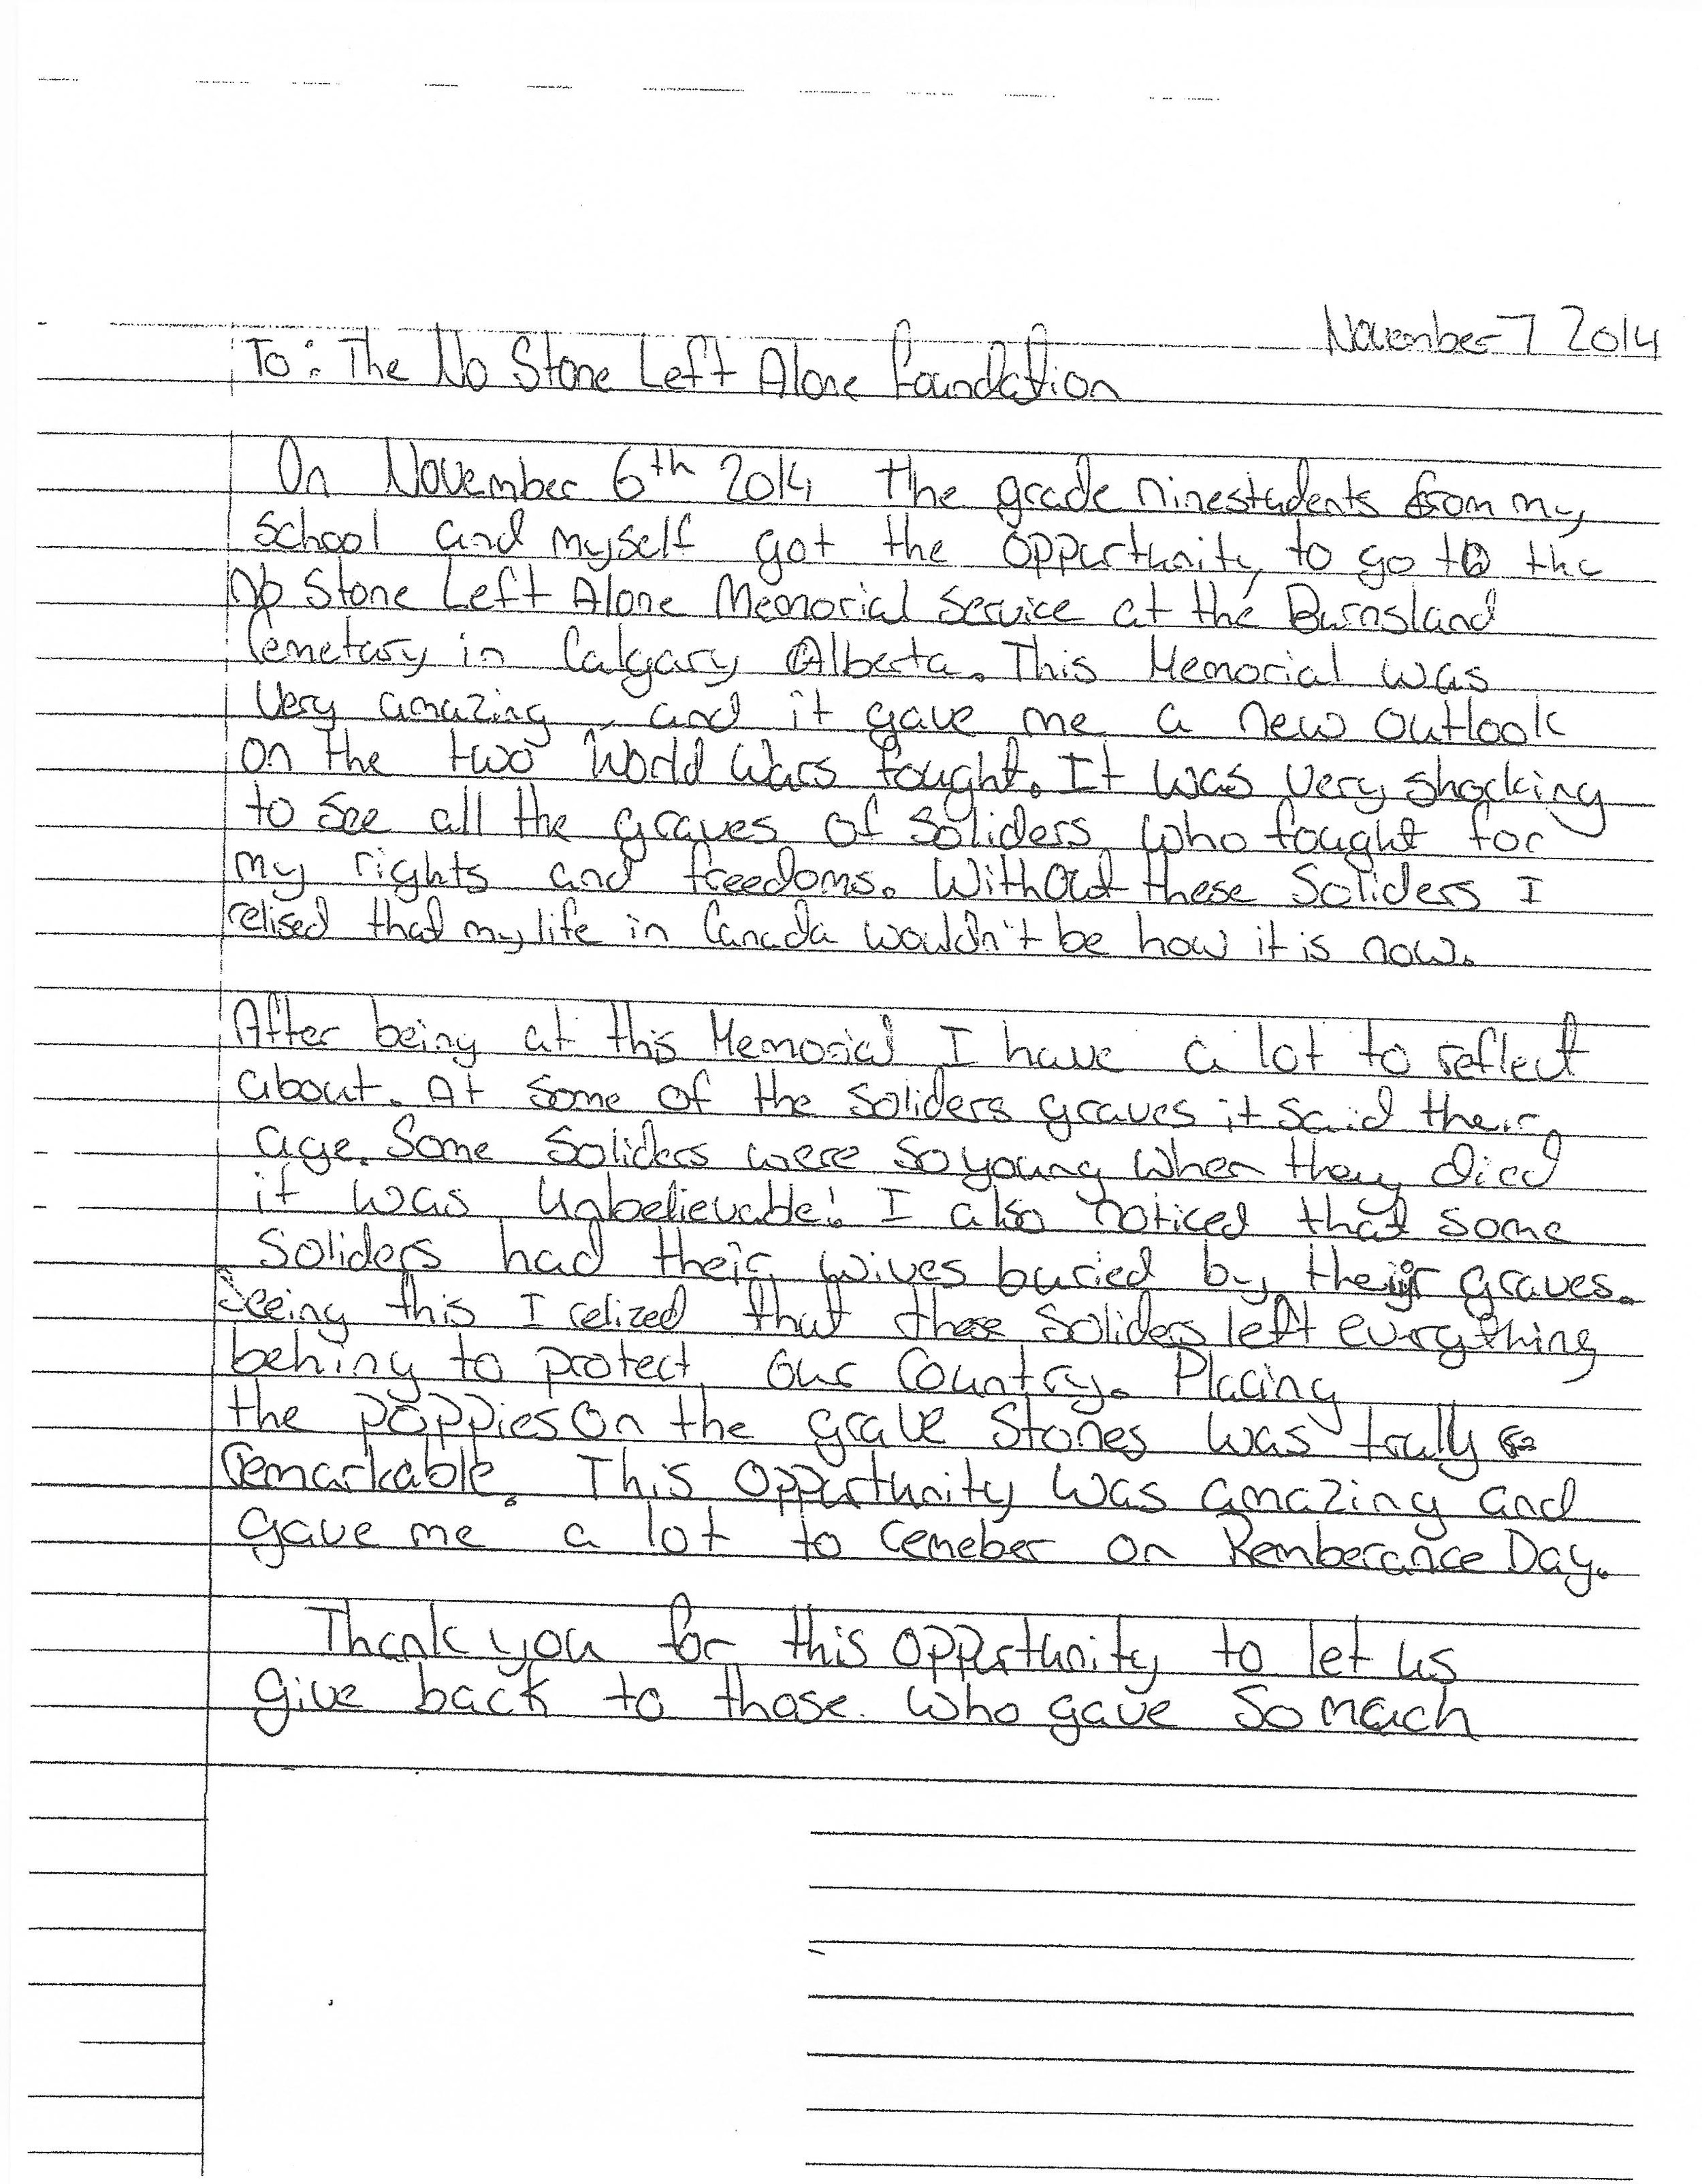 November 7 2014
To: The No Stone Left Alone foundation
On November 6th 2014 the grade ninestudents from my
school and myself got the oppurtunity to go to the
No Stone Left Alone Memorial Service at the Burnsland
Cemetary in Calgary Alberta. This Memorial was
very amazing and it gave me a new outlook
on the two World Wars fought. It was very shocking
to see all the graves of Soliders who fought for
my rights and freedoms. Without these Soliders I
relised that my life in Canada wouldn't be how it is now.
After being at this Memorial I have a lot to reflect
about. At some of the soliders graves it said their
age. Some Soliders were so young when they died
it was Unbelievable! I also noticed that some
Soliders had their wives buried by their graves.
Seeing this I relized that these Soliders left everything
behing to protect our Country. Placing
the poppies on the grave Stones was trully
remarkable. This oppurtunity was amazing and
gave me a lot to remeber on Remberance Day.
Thank you for this oppurtunity to let us
give back to those who gave so much